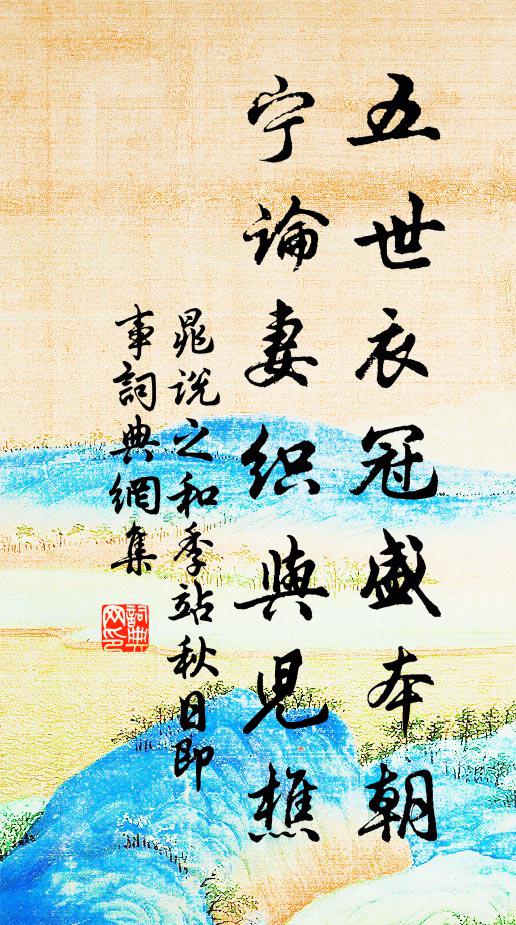 五世衣冠盛本朝
宁論妻織與兒樵
晁說之和季站秋日即
事詞典網集
詞典
网印